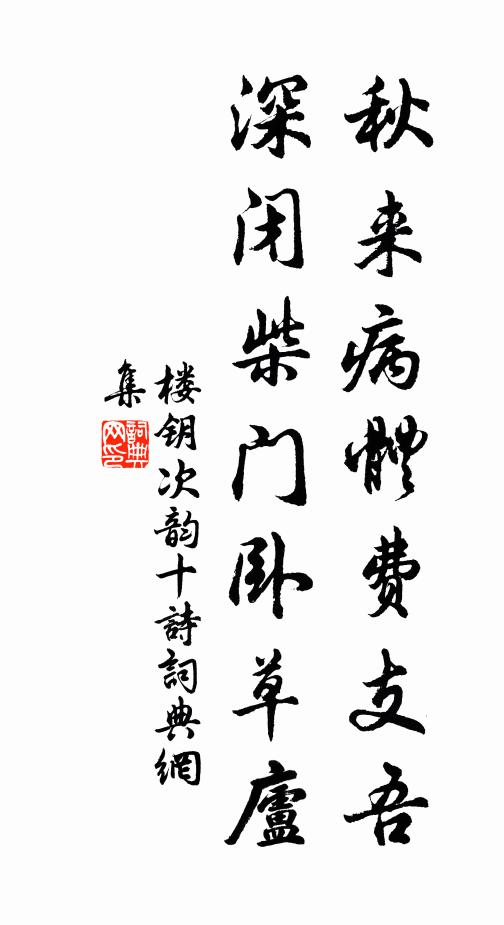 秋来病體费支吾
深闭柴门卧草廬
楼钥次韵十詩詞典網
集
詞典网印